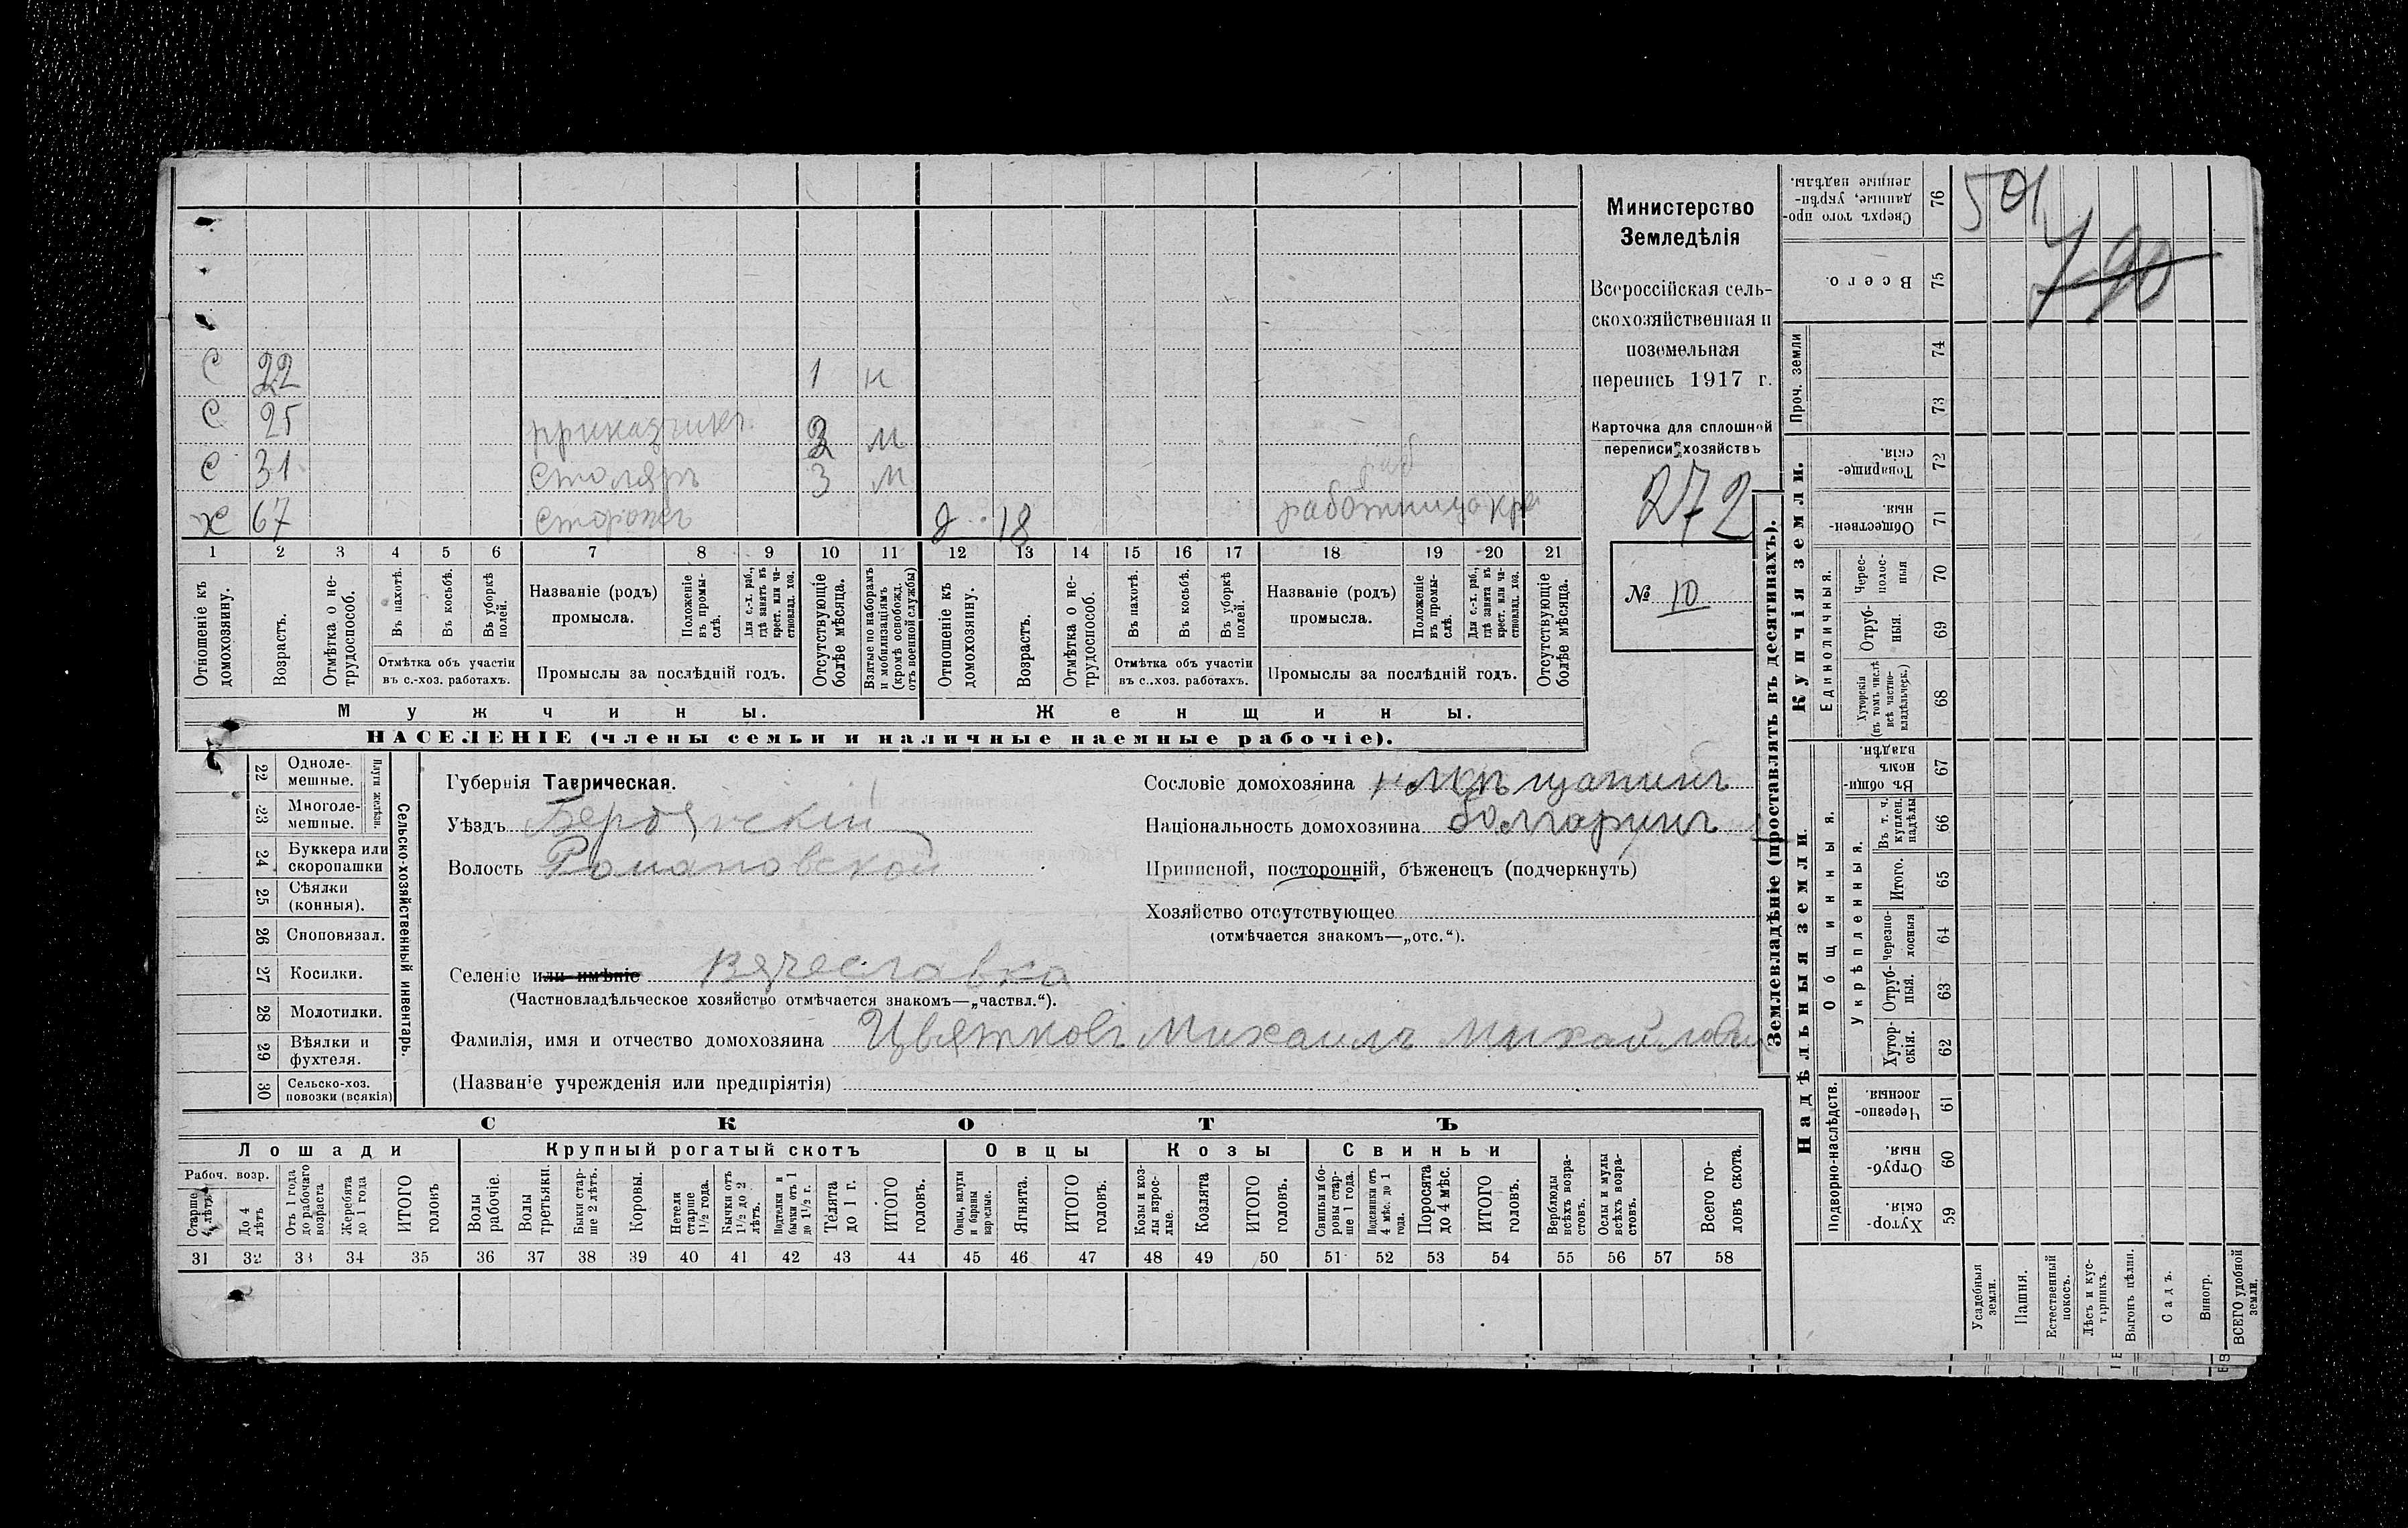 С 22 1 н
С 25 приказчикъ 3 м
С 31 столяръ 3 м
х 67 сторожъ д 18 работница
1 2 3 4 5 6 7 8 9 10 11 12 13 14 15 16 17 18 19 20 21
Отношеніе къ домохозяину.
Возрастъ.
Отмѣтка о нетрудоспособ.
Въ пахотѣ.
Въ косьбѣ.
Въ уборкѣ полей.
Отмѣтка объ участіи
въ с.-хоз. работахъ.
Названіе (родъ)
промысла.
Положеніе въ промыслѣ.
Для с.-х. раб., гдѣ занятъ въ крест. или частновлад. хоз.
Промыслы за послѣдній годъ.
Отсутствующіе болѣе мѣсяца.
Взятые по наборамъ и мобилизаціямъ (кромѣ освобожд. отъ военной службы)
Отношеніе къ домохозяину.
Возрастъ.
Отмѣтка о нетрудоспособ.
Въ пахотѣ.
Въ косьбѣ.
Въ уборкѣ полей.
Отмѣтка объ участіи
въ с.-хоз. работахъ.
Названіе (родъ)
промысла.
Положеніе въ промыслѣ.
Для с.-х. раб., гдѣ занята въ крест. или частновлад. хоз.
Промыслы за послѣдній годъ.
Отсутствующіе болѣе мѣсяца.
Мужчины.
Женщины.
НАСЕЛЕНІЕ (члены семьи и наличные наемные рабочіе).
Министерство
Земледѣлія
Всероссійская сель-
скохозяйственная и
поземельная
перепись 1917 г.
Карточка для сплошной
переписи хозяйствъ
272
№ 10
22 Одноле-
мешные.
23 Многоле-
мешные.
Плуги желѣзн.
24 Буккера или
скоропашки
25 Сѣялки
(конныя).
26 Сноповязал.
27 Косилки.
28 Молотилки.
29 Вѣялки и
фухтеля.
30 Сельско-хоз.
повозки (всякія)
Сельско-хозяйственный инвентарь.
Губернія Таврическая.
Уѣздъ Бердянскій
Волость Романовской
Селеніе или имѣніе Вячеславка
(Частновладѣльческое хозяйство отмѣчается знакомъ—„частвл.“).
Фамилія, имя и отчество домохозяина Цвятковъ Михаилъ Михайлович
(Названіе учрежденія или предпріятія)
Сословіе домохозяина мѣщанинъ
Національность домохозяина болгаринъ
Приписной, посторонній, бѣженецъ (подчеркнуть)
Хозяйство отсутствующее
(отмѣчается знакомъ—„отс.“).
СКОТЪ
Лошади
Крупный рогатый скотъ
Овцы
Козы
Свиньи
Рабоч. возр.
Старше 4 лѣтъ
До 4 лѣтъ
Отъ 1 года до рабочаго возраста
Жеребята до 1 года
ИТОГО головъ
Волы рабочіе.
Волы третьяки.
Быки старше 2 лѣтъ.
Коровы.
Нетели старше 1½ года.
Бычки отъ 1½ до 2 лѣтъ.
Подтелки и бычки отъ 1 до 1½ г.
Телята до 1 г.
ИТОГО головъ.
Овцы, валухи и бараны взрослые.
Ягнята.
ИТОГО головъ.
Козы и козлы взрослые.
Козлята
ИТОГО головъ.
Свиньи и боровы старше 1 года.
Подсвинки отъ 4 мѣс. до 1 года.
Поросята до 4 мѣс.
ИТОГО головъ.
Верблюды всѣхъ возрастовъ.
Ослы и мулы всѣхъ возрастовъ.
Всего головъ скота.
31 32 33 34 35 36 37 38 39 40 41 42 43 44 45 46 47 48 49 50 51 52 53 54 55 56 57 58
Землевладѣніе (проставлять въ десятинахъ).
Надѣльныя земли.
Купчія земли.
Проч. земли
Подворно-наслѣдств.
Общинныя.
Укрѣпленныя.
Единоличныя.
Сверхъ того проданные, укрѣпленные надѣлы. 76
Всего. 75
74
73
Товарищескія. 72
Общественныя. 71
Чересполосныя 70
Отрубныя. 69
Хуторскія (въ томъ числѣ всѣ частновладѣльческ.) 68
Въ общинномъ владѣн. 67
Въ т. ч. куплен. надѣлы 66
Итого. 65
Черезполосныя 64
Отрубныя. 63
Хуторскія. 62
Черезполосныя. 61
Отрубныя. 60
Хуторскія. 59
Усадебныя земли.
Пашня.
Естественный покосъ.
Лѣсъ и кустарникъ.
Выгонъ цѣлин.
Садъ.
Виногр.
ВСЕГО удобной земли.
501
790